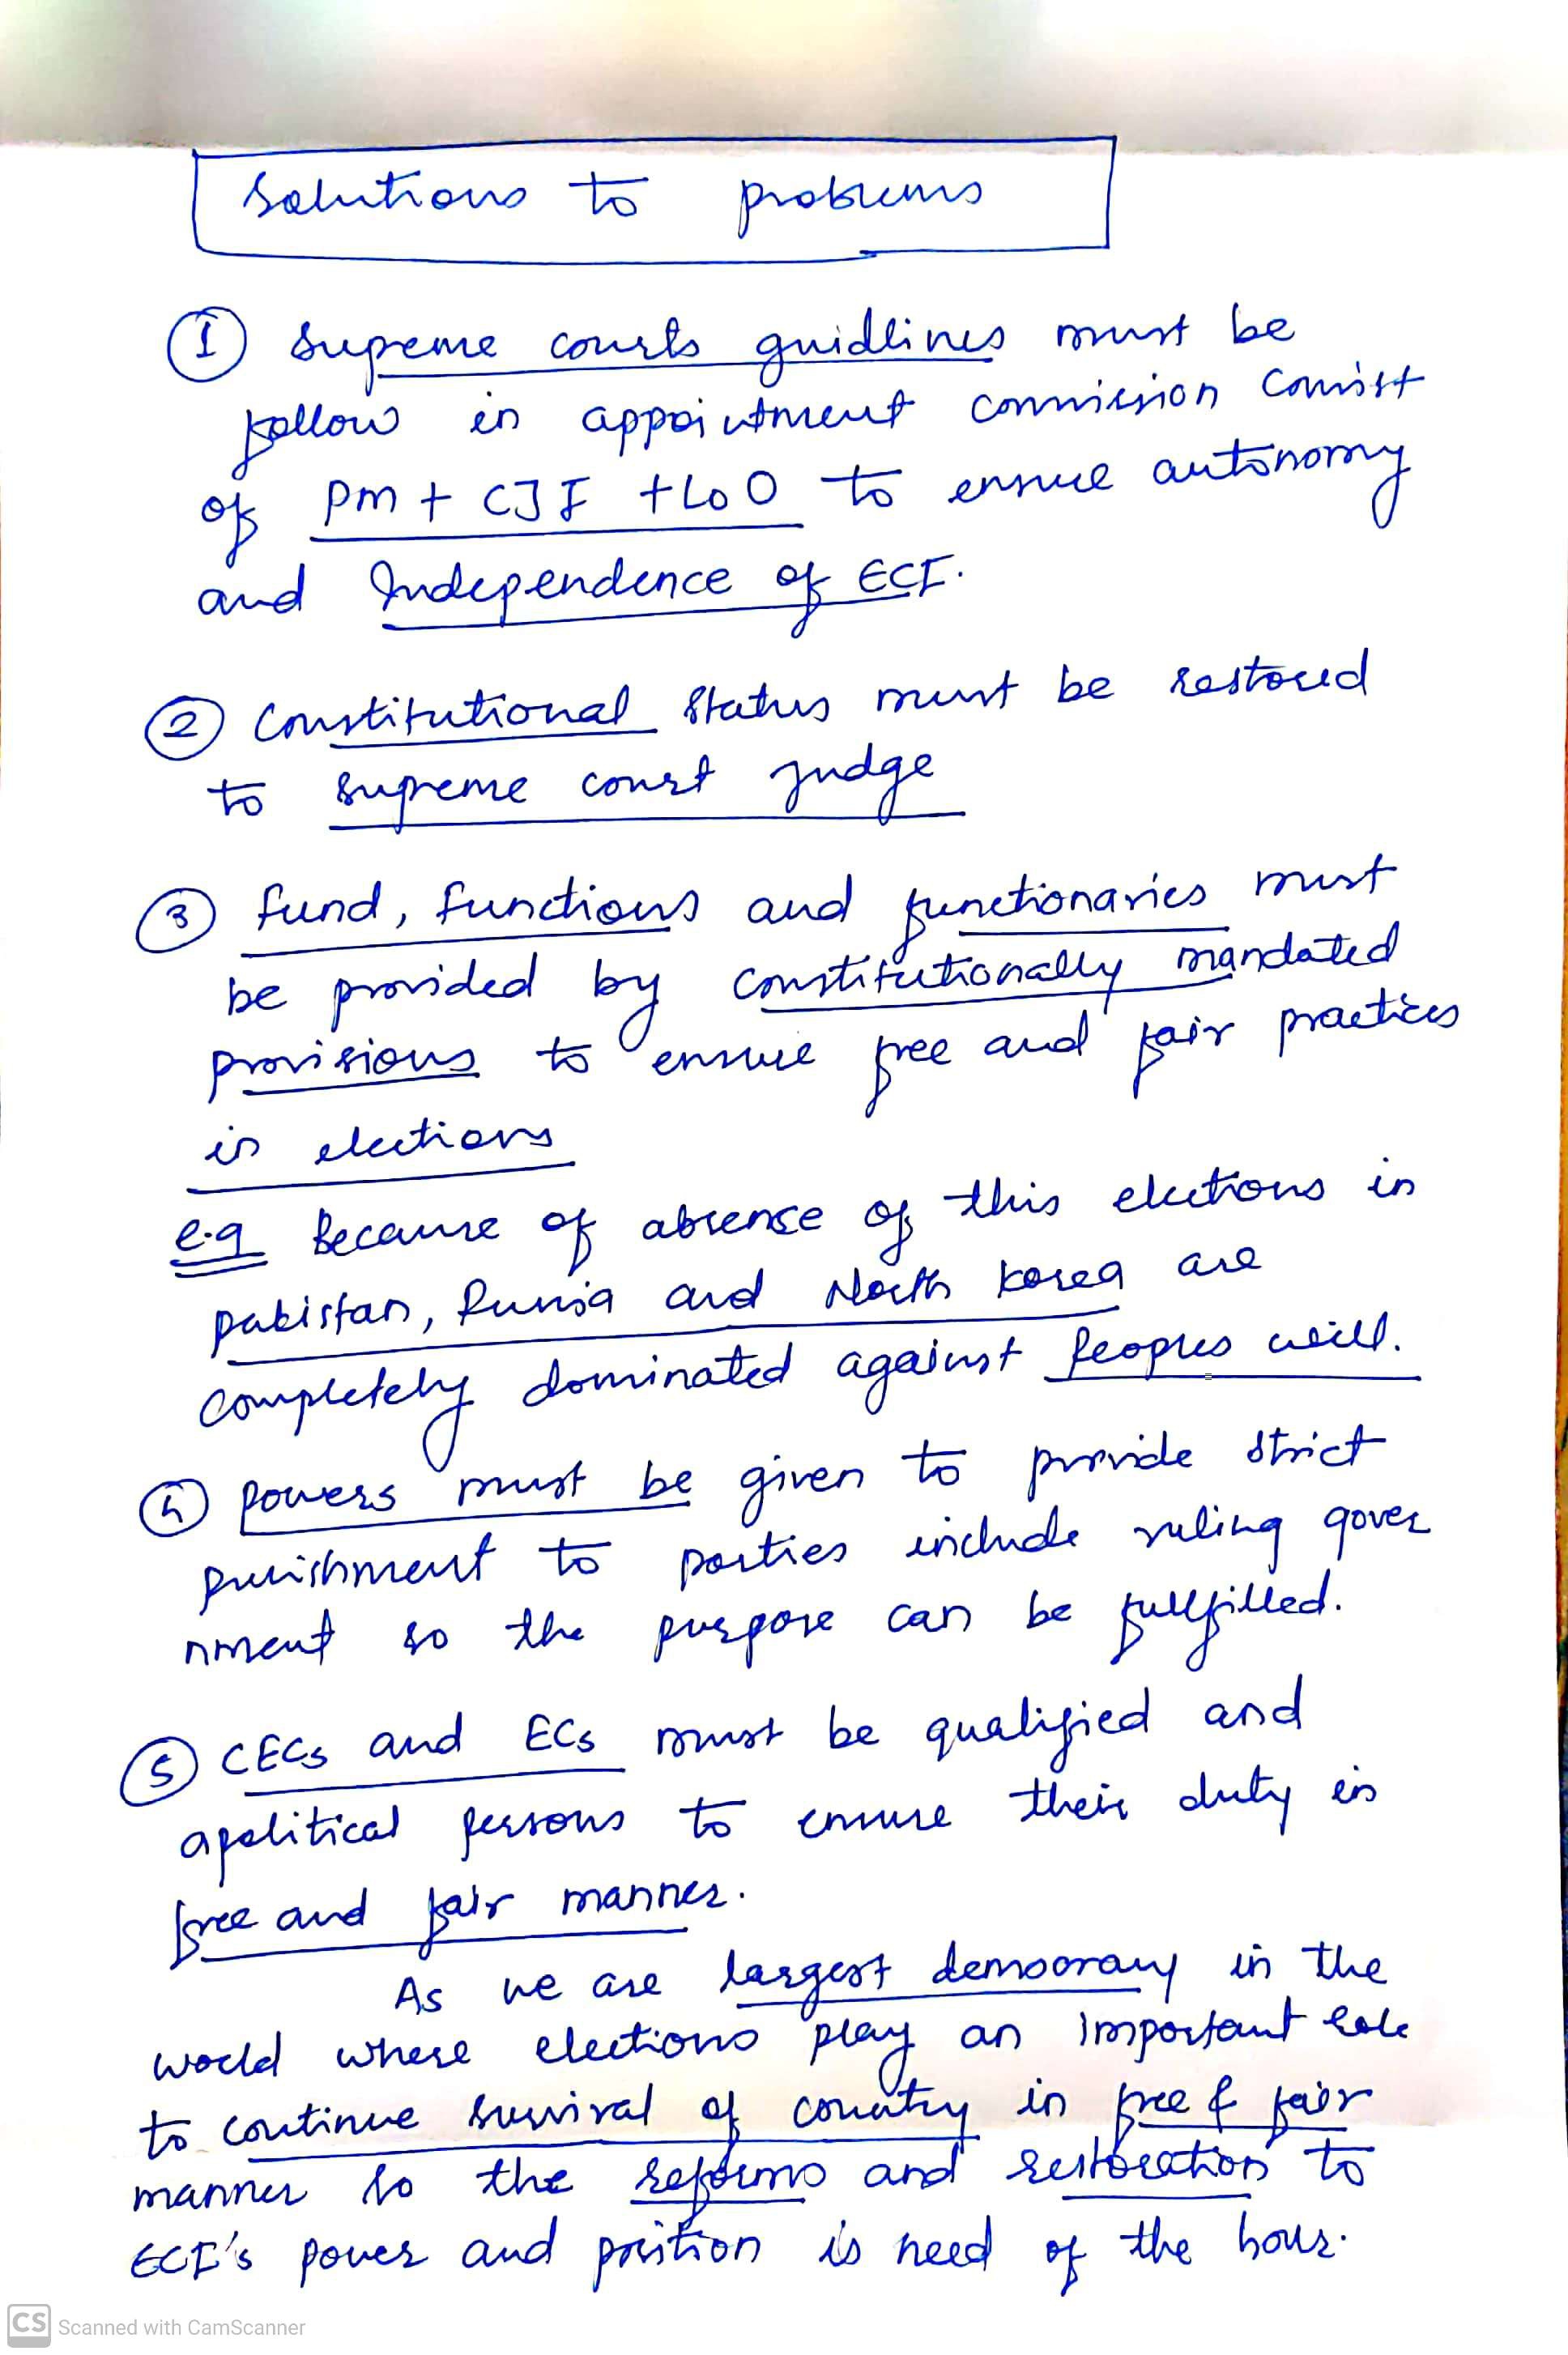 Solutions to problems
① Supreme courts guidlines must be
follow in appointment commission consist
of PM + CJI + LoO to ensure autonomy
and Independence of ECI.
② Constitutional Status must be restored
to supreme court judge
③ fund, functions and functionaries must
be provided by constitutionally mandated
provisions to ensure free and fair practices
in elections
e.g Because of absense of this elections in
pakistan, Russia and North Korea are
completely dominated against Peoples will.
④ powers must be given to provide strict
punishment to parties include ruling gover
nment so the purpose can be fullfilled.
⑤ CECs and ECs must be qualified and
apolitical persons to ensure their duty in
free and fair manner.
As we are largest democracy in the
world where elections play an important role
to continue survival of country in free & fair
manner so the reforms and restoration to
ECI's power and position is need of the hour.
CS Scanned with CamScanner